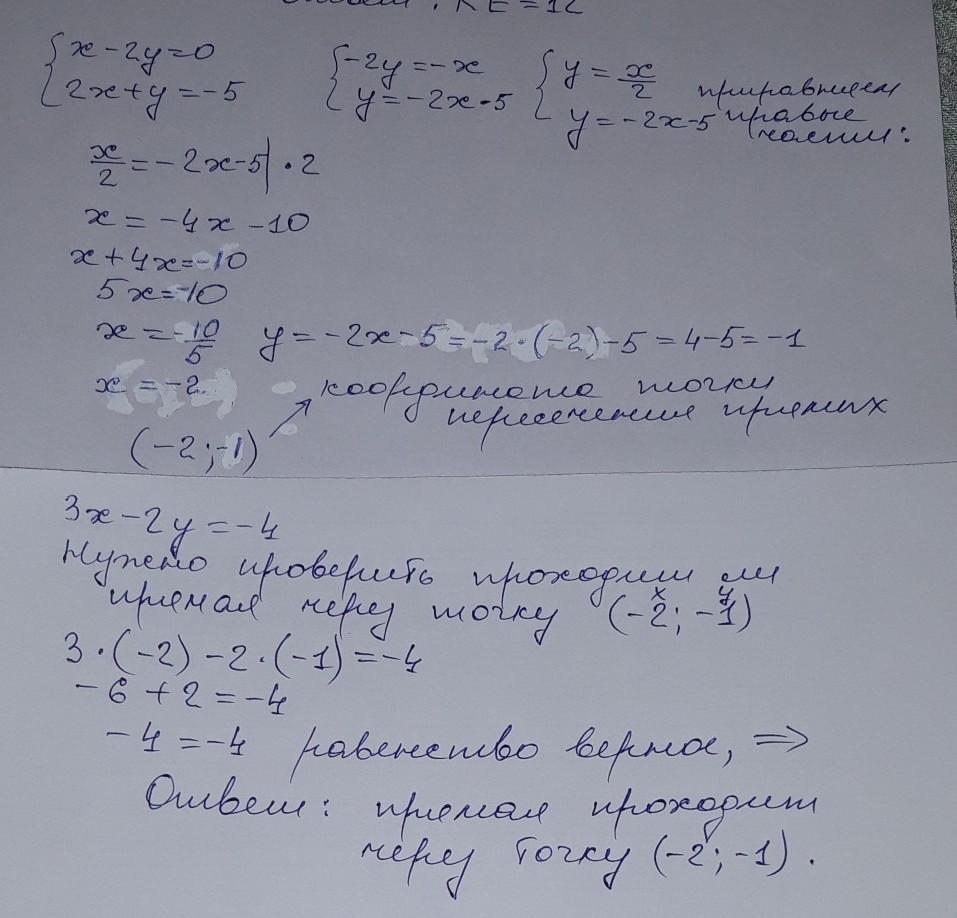 Ответ: KE=12
{x-2y=0 {-2y=-x {y=x/2 приравняем
{2x+y=-5 {y=-2x-5 {y=-2x-5 правые
части:
x/2=-2x-5|·2
x=-4x-10
x+4x=-10
5x=-10
x=-10/5 y=-2x-5=-2·(-2)-5=4-5=-1
x=-2 координата точки
пересечения прямых
(-2;-1)
3x-2y=-4
Нужно проверить проходит ли
x y
прямая через точку (-2;-1)
3·(-2)-2·(-1)=-4
-6+2=-4
-4=-4 равенство верное, ⇒
Ответ: прямая проходит
через точку (-2;-1).